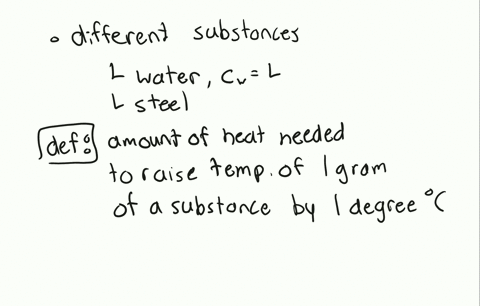 • different substances
L water, Cv = L
L steel
def: amount of heat needed
to raise temp. of 1 gram
of a substance by 1 degree °C